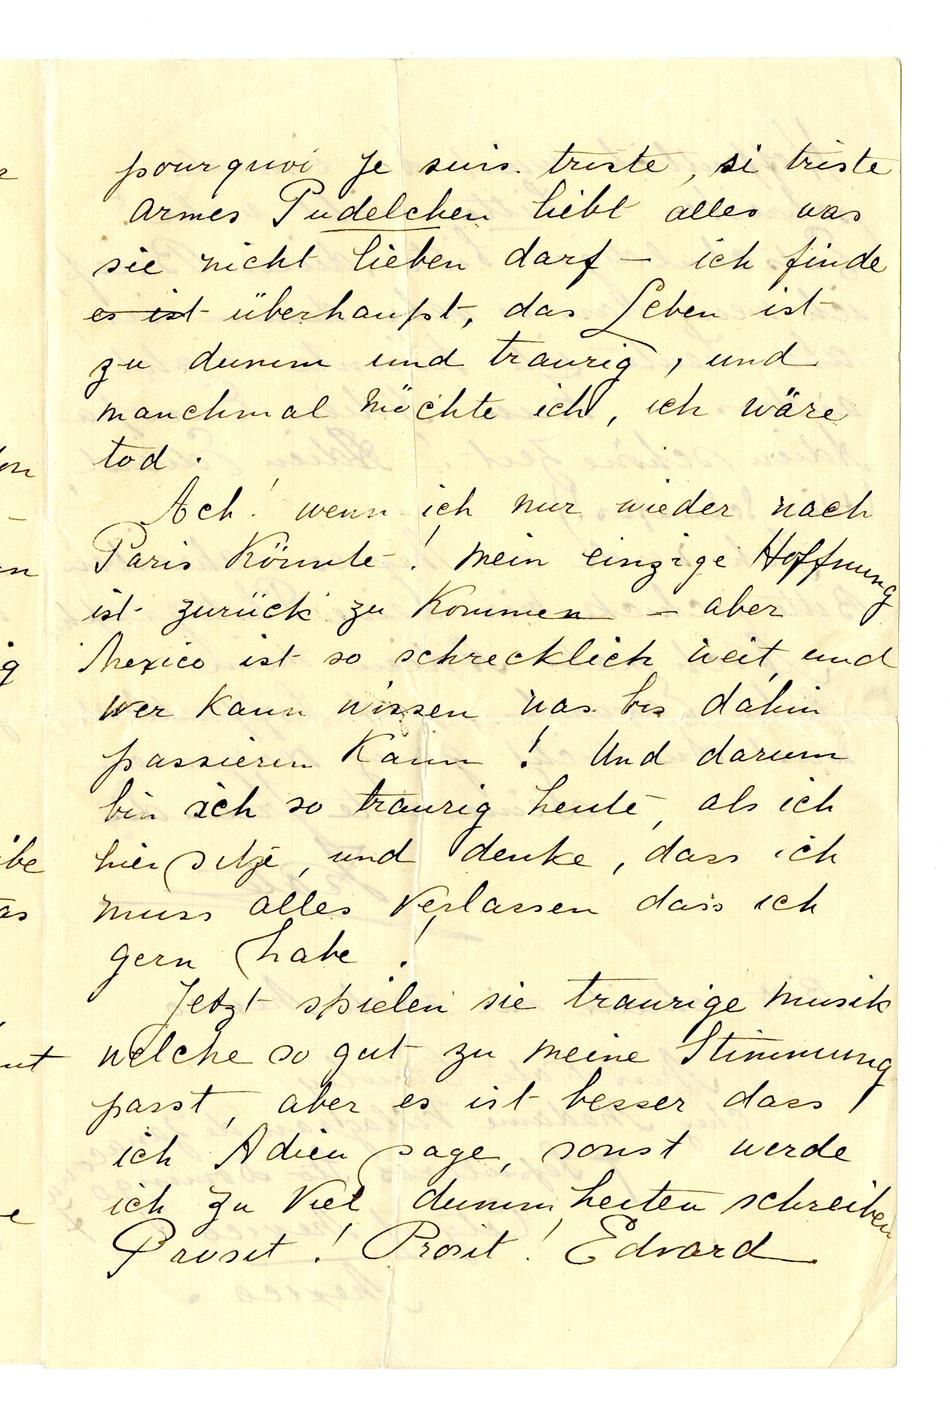 pourquoi je suis triste, si triste
Armes Pudelchen liebt alles was
sie nicht lieben darf – ich finde
es ist überhaupt, das Leben ist
zu dumm und traurig, und
manchmal möchte ich, ich wäre
tod.
Ach! wenn ich nur wieder nach
Paris könnte! mein einzige Hoffnung
ist zurück zu kommen – aber
Mexico ist so schrecklich weit, und
wer kann wissen was bis dahin
passieren kann! Und darum
bin ich so traurig heute, als ich
hier sitze, und denke, dass ich
muss alles verlassen dass ich
gern habe!
Jetzt spielen sie traurige musik
welche so gut zu meine Stimmung
passt, aber es ist besser dass
ich Adieu sage, sonst werde
ich zu viel dummheiten schreiben
Prosit! Prosit! Edvard